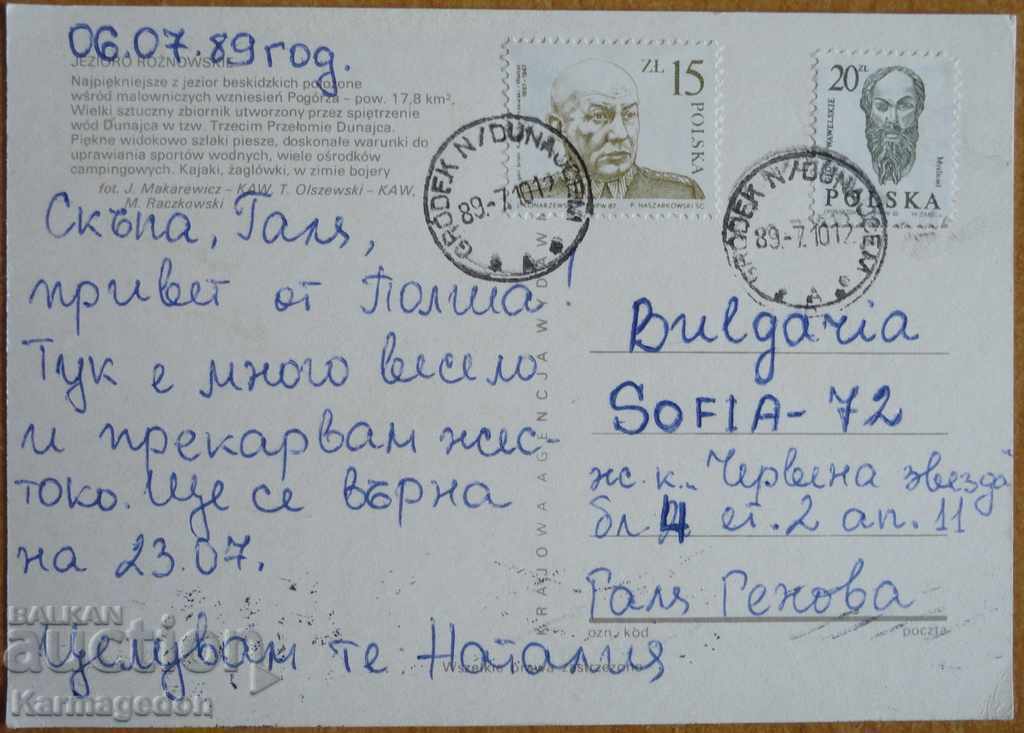 06.07.89 год.
JEZIORO ROŻNOWSKIE
Najpiękniejsze z jezior beskidzkich położone
wśród malowniczych wzniesień Pogórza – pow. 17,8 km².
Wielki sztuczny zbiornik utworzony przez spiętrzenie
wód Dunajca w tzw. Trzecim Przełomie Dunajca.
Piękne widokowo szlaki piesze, doskonałe warunki do
uprawiania sportów wodnych, wiele ośrodków
campingowych. Kajaki, żaglówki, w zimie bojery
fot. J. Makarewicz – KAW, T. Olszewski – KAW,
M. Raczkowski
Скъпа, Галя,
привет от Полша!
Тук е много весело
и прекарвам жес-
токо. Ще се върна
на 23.07.
Целувам те Наталия
ZŁ 15
POLSKA
P. NASZARKOWSKI SC.
20 ZŁ
WAWELSKIE
POLSKA
GRÓDEK N/DUNAJCEM
89.-7.10 12
A
GRÓDEK N/DUNAJCEM
89.-7.10 12
A
KRAJOWA AGENCJA WYDAW
Bulgaria
SOFIA-72
ж.к. Червена звезда
бл 4 ет. 2 ап. 11
Галя Генова
ozn. kod poczta
Wszelkie prawa zastrzeżone
BALKAN
auction
Karmagedon